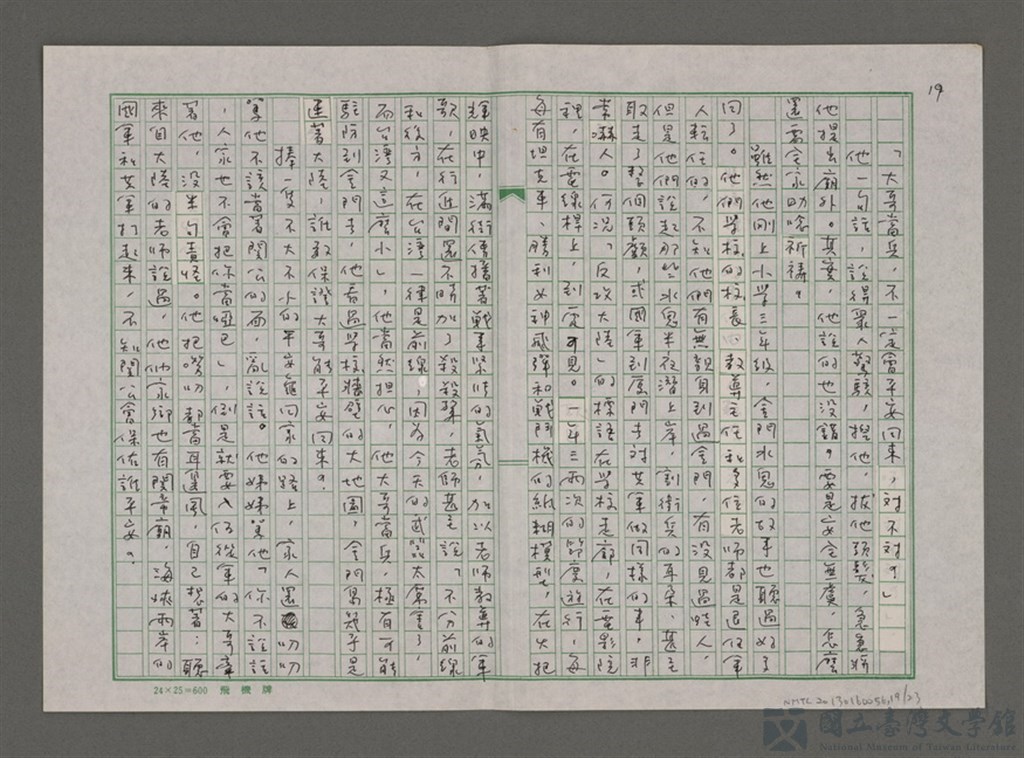 19
「大哥當兵，不一定會平安回來，對不對？」
他一句話，說得眾人驚駭，捏他，拔他頭髮，急急將
他提出廟外。其實，他說的也沒錯，要是安全無虞，怎麼
還需全家助唸祈禱。
雖然他剛上小學三年級，金門水鬼的故事也聽過好了
回了。他們學校的校長、教導主任和多位老師都是退伍軍
人転任的，不知他們有無親自到過金門，有沒見過啥人，
但是他們說起那些水鬼半夜潛上岸，割衛兵的耳朵，甚至
取走了整個頭顱，或國軍到廈門去对共軍做同樣的事，非
常嚇人。何況「反攻大陸」的標語在學校走廊，在電影院
裡，在電線桿上，到處可見。一年三兩次的節慶遊行，每
每有坦克車、勝利女神飛彈和戰鬥機的紙糊模型，在火把
輝映中，滿街傳播著戰事緊張的氣氛，加以老師教導的軍
歌，在行進間還不時加了殺殺聲，老師甚至說「不分前線
和後方，在台灣一律是前線，因為今天的武器太厲害了，
而台灣又這麼小」，他當然担心，他大哥當兵，極有可能
駐防到金門去，他看過學校牆壁的大地圖，金門馬祖于是
連著大陸，誰敢保證大哥能平安回來？
捧一隻不大不小的平安龜回家的路上，家人還叨叨
罵他不該當著関公的面，亂說話。他姊姊罵他「你不說話
，人家也不會把你當啞巴」，倒是就要入伍從軍的大哥牽
著他，沒半句責怪。他把嘮叨都當耳邊風，自己想著：聽
來自大陸的老師說過，他們家鄉也有関帝廟，海峽兩岸的
國軍和共軍打起來，不知関公會保佑誰平安？
24×25=600 飛機牌
NMTL20130160056,19/23
國立臺灣文學館
National Museum of Taiwan Literature